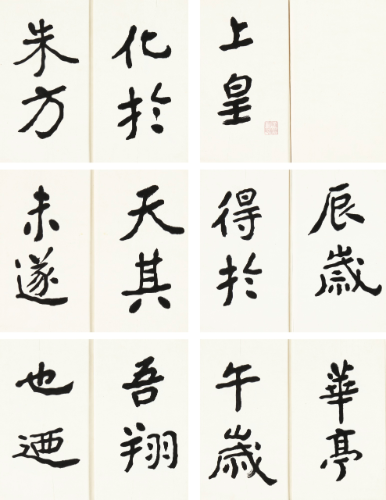 上皇
辰歲
得於
華亭
午歲
化於
朱方
天其
未遂
吾翔
也迺